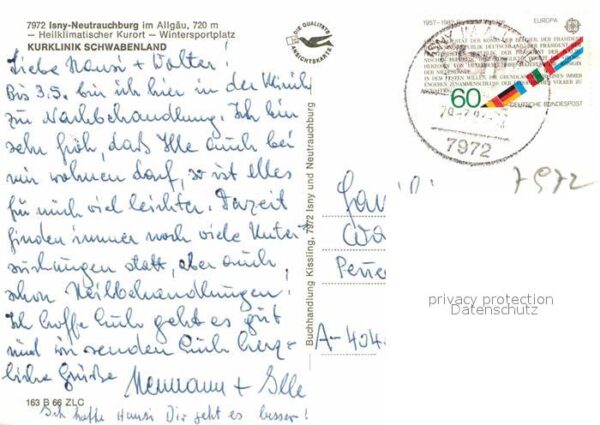 7972 Isny-Neutrauchburg im Allgäu, 720 m
— Heilklimatischer Kurort — Wintersportplatz
KURKLINIK SCHWABENLAND
Liebe Hansi + Walter!
Bis 3.5. bin ich hier in der Klinik
zur Nachbehandlung. Ich bin
sehr froh, daß Ille auch bei
mir wohnen darf, so ist alles
für mich viel leichter. Derzeit
finden immer noch viele Unter=
suchungen statt, aber auch
schon Heilbehandlungen.
Ich hoffe Euch geht es gut
und wir senden Euch herz=
liche Grüße Hermann + Ille
163 B 66 ZLC
Ich hoffe Hansi Dir geht es besser!
DIE QUALITÄTS
ANSICHTSKARTE
Buchhandlung Kissling, 7972 Isny und Neutrauchburg
1957-1982
EUROPA
60
DEUTSCHE BUNDESPOST
7972
7972
Fam
A-404
privacy protection
Datenschutz